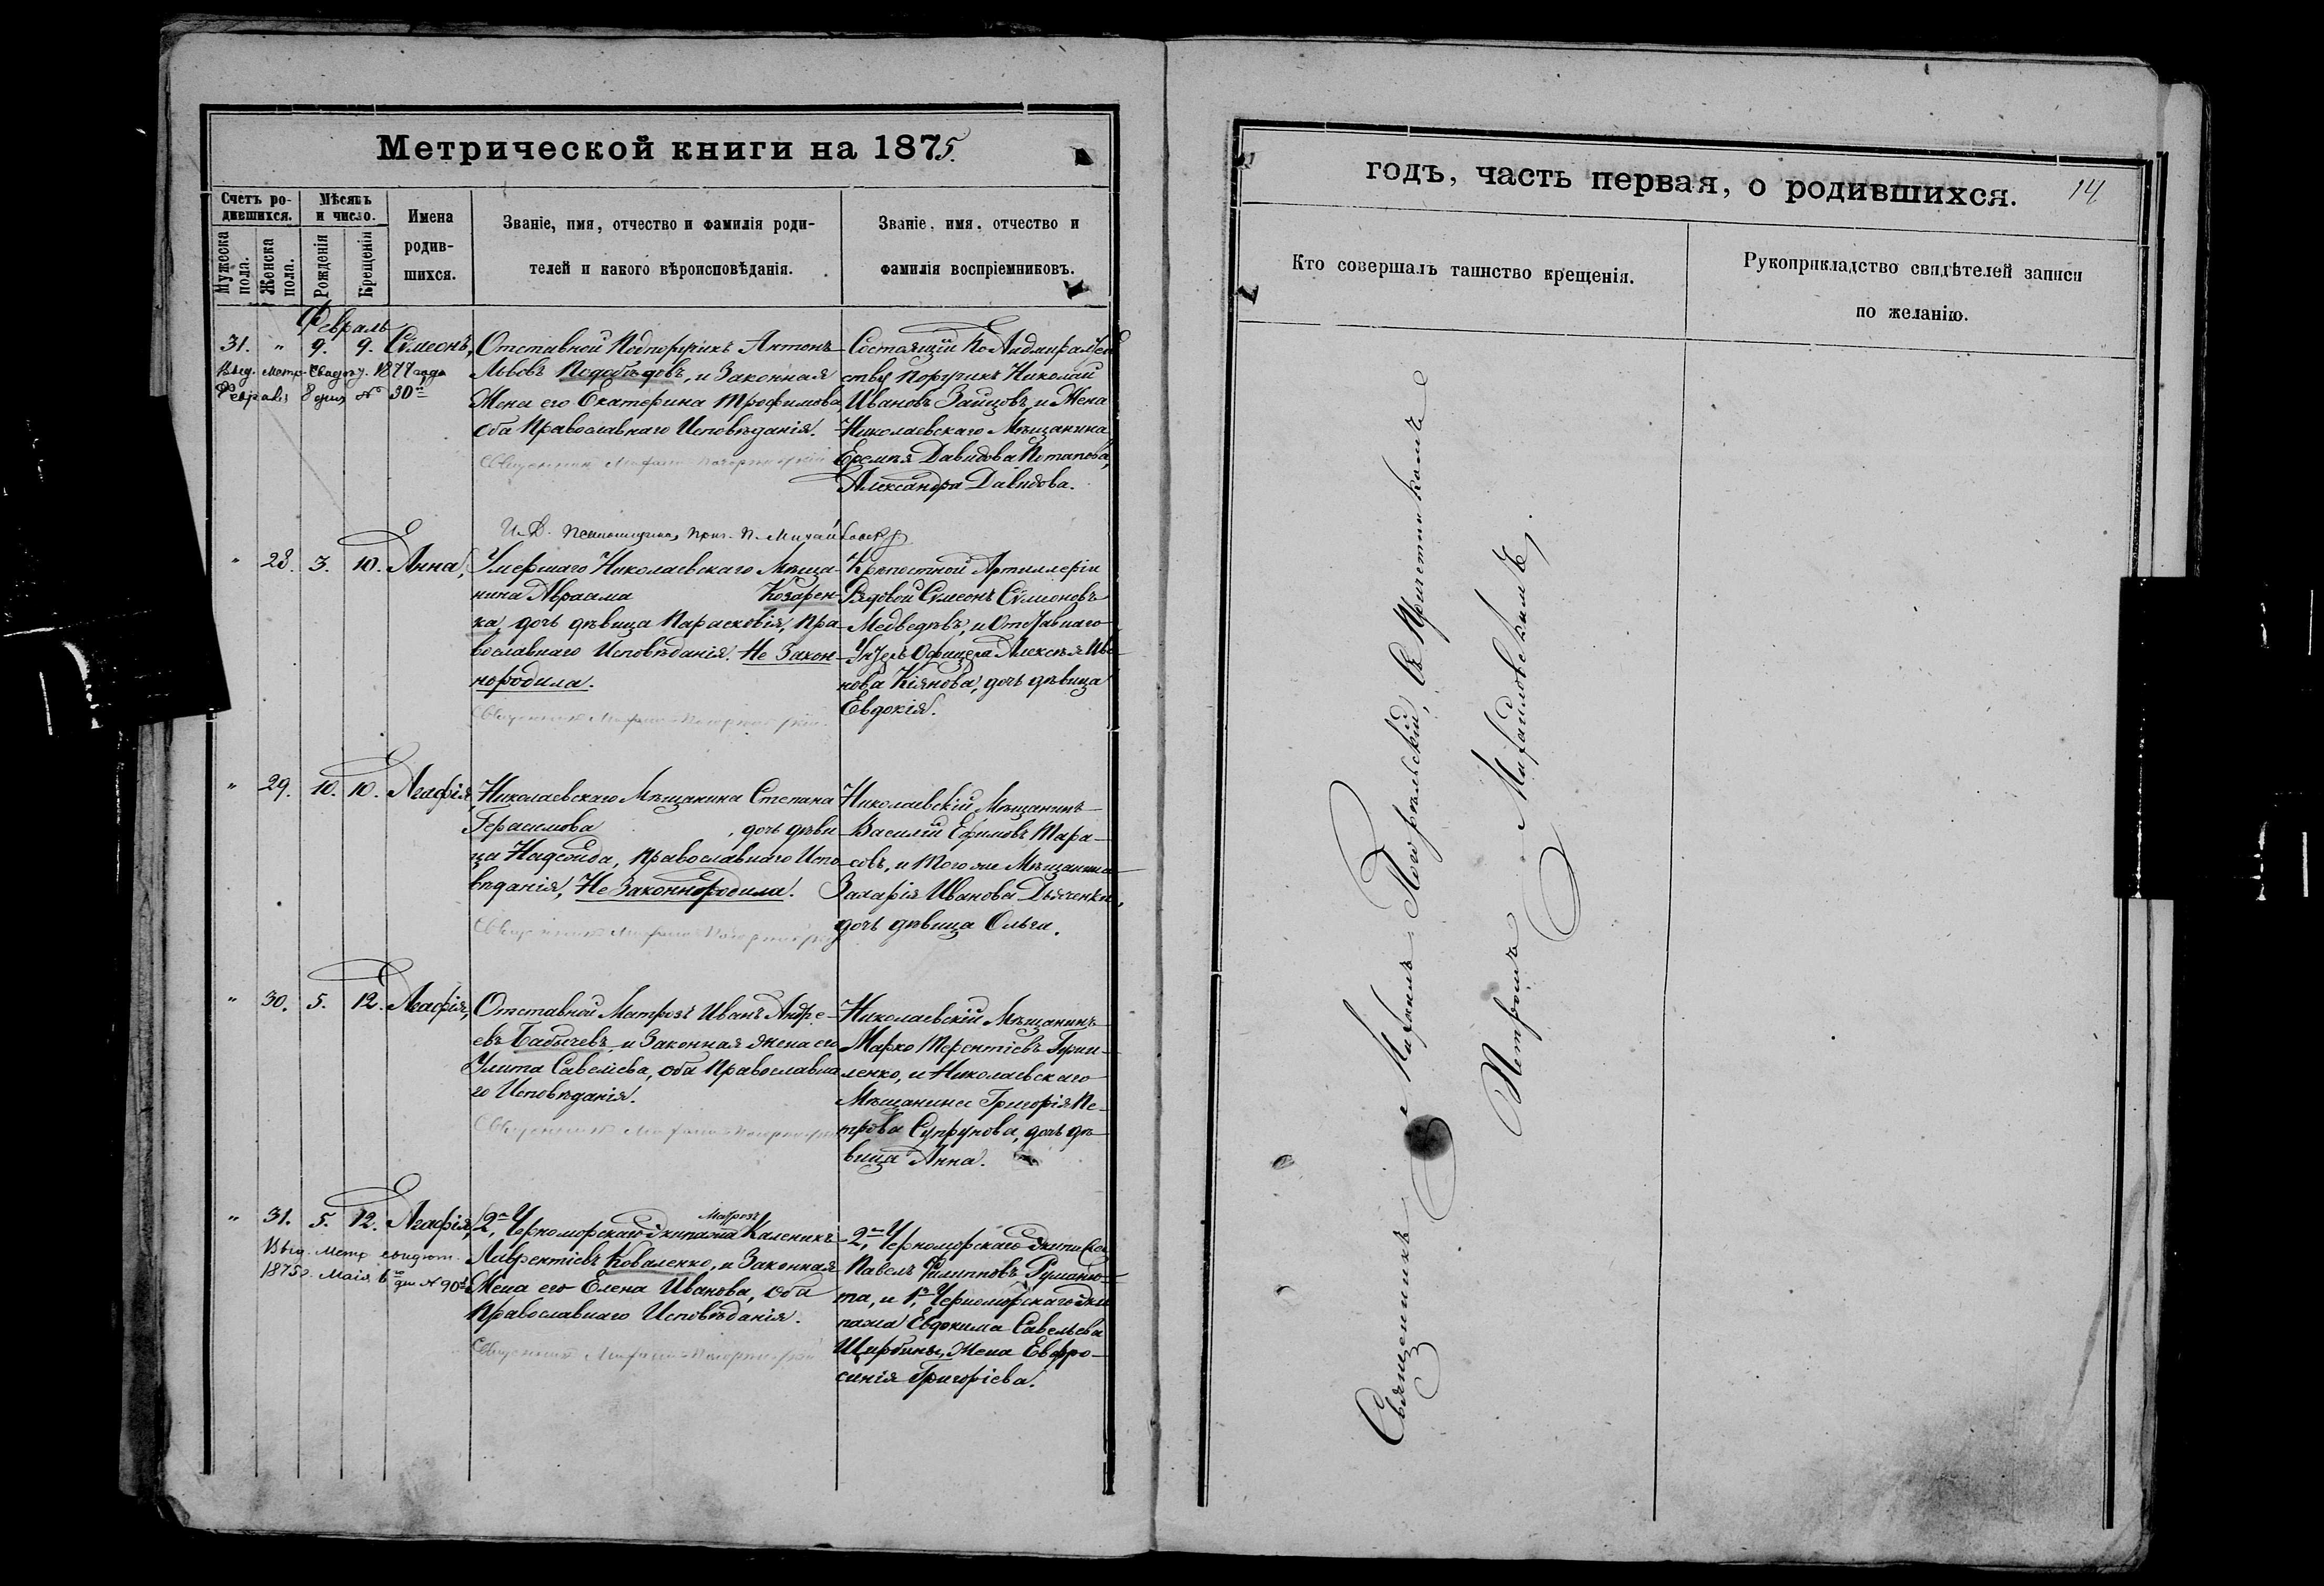 Метрической книги на 1875.
Счетъ ро-
дившихся.
Мужеска пола.
Женска пола.
Мѣсяцъ
и число.
Рожденія
Крещенія
Имена
родив-
шихся.
Званіе, имя, отчество и фамилія роди-
телей и какого вѣроисповѣданія.
Званіе, имя, отчество и
фамилія воспріемниковъ.
Февраль
31. " 9. 9. Сѵмеонъ,
Выд. метр. Свидѣт. 1877 года
Февраля 8 дня № 30й
Отставной Подпоручикъ Антонъ
Львовъ Подобѣдовъ, и Законная
Жена его Екатерина Трофимова,
оба Православнаго Исповѣданія.
Священникъ Михаилъ
Состоящій по Адмиралтей
ству Поручикъ Николай
Ивановъ Зайцовъ, и Жена
Николаевскаго Мѣщанина
Еремѣя Давидова Потапова,
Александра Давидова.
" 28. 3. 10. Анна,
Умершаго Николаевскаго Мѣща-
нина Авраама Козарен-
ка, дочь дѣвица Парасковія, Пра-
вославнаго Исповѣданія. Не Закон-
нородила.
Священникъ Михаилъ
Крѣпостной Артиллеріи
Рядовой Сѵмеонъ Сѵмионовъ
Медведѣвъ, и Отставнаго
Унтеръ Офицера Алексѣя Ива
нова Кіянова, дочь дѣвица
Евдокія.
" 29. 10. 10. Агафія
Николаевскаго Мѣщанина Степана
Герасимова , дочь дѣви
ца Надежда, Православнаго Испо
вѣданія, Не Законнородила.
Священникъ Михаилъ
Николаевскій Мѣщанинъ
Василій Ефимовъ Тара-
совъ, и того же Мѣщанина
Захарія Иванова Дьяченка,
дочь дѣвица Ольга.
" 30. 5. 12. Агафія,
Отставной Матрозъ Иванъ Андре-
евъ Бабичевъ, и Законная Жена его
Улита Савелѣева, оба Православна
го Исповѣданія.
Священникъ Михаилъ
Николаевскій Мѣщанинъ
Марко Терентіевъ
ленко, и Николаевскаго
Мѣщанина Григорія Пе-
трова Супрунова, дочь дѣ-
вица Анна.
" 31. 5. 12. Агафія,
Выд. Метр. свидѣт.
1875 г. Маія 6 дня № 90й
Матрозъ
2го Черноморскаго Экипажа Каленикъ
Лаврентіевъ Коваленко, и Законная
Жена его Елена Иванова, оба
Православнаго Исповѣданія.
Священникъ Михаилъ
2го Черноморскаго Экипажа
Павелъ Филипповъ
та, и 1го Черноморскаго Эки
пажа Евдокима Савельева
Щирбины, Жена Евфро-
синія Григоріева.
годъ, часть первая, о родившихся.
14
Кто совершалъ таинство крещенія.
Рукоприкладство свидѣтелей записи
по желанію.
Священникъ Михаилъ Погорѣльскій, съ Причетникомъ
Петромъ Михайловскимъ.